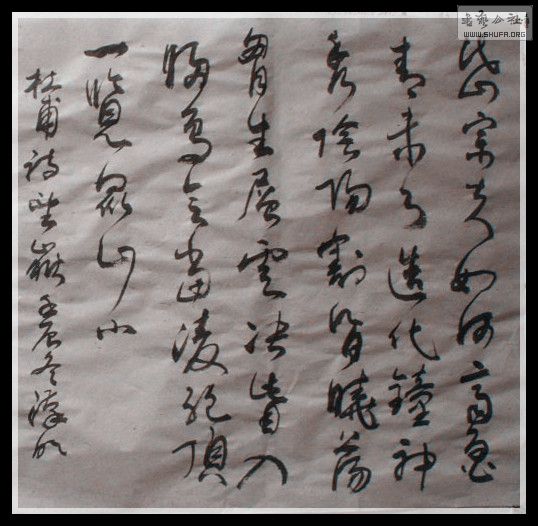 岱宗夫如何齊魯
青未了造化鐘神
秀陰陽割昏曉蕩
胷生層雲決眥入
歸鳥會當凌絕頂
一覽眾山小
杜甫詩望嶽壬辰冬
书艺公社
WWW.SHUFA.ORG